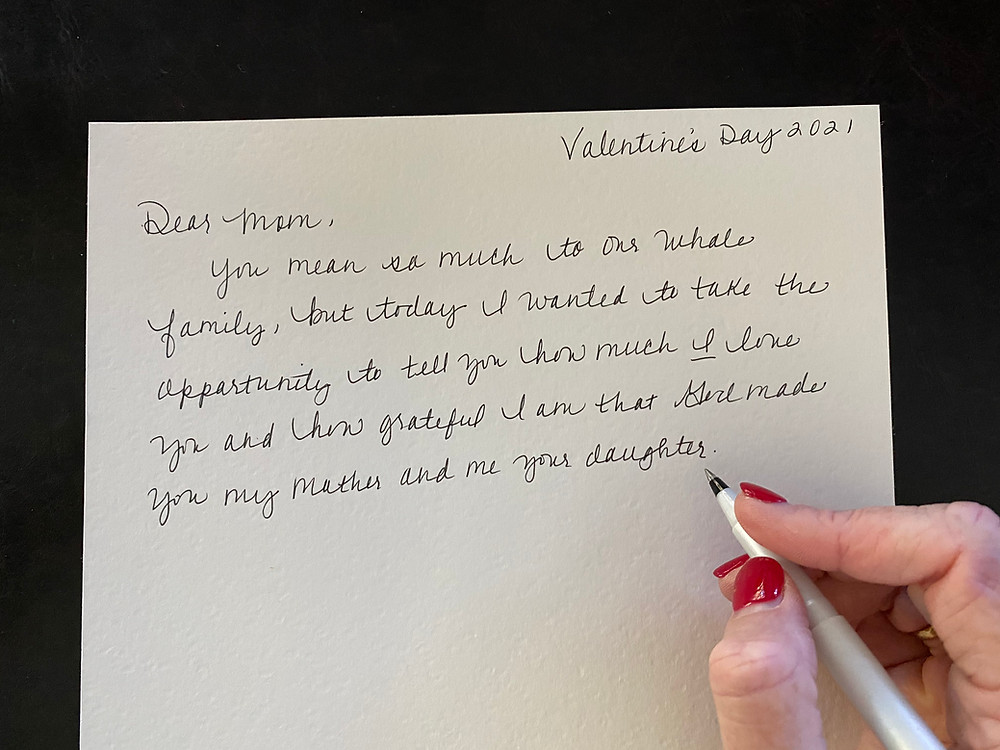 Valentine's Day 2021
Dear Mom,
You mean so much to our whole
family, but today I wanted to take the
opportunity to tell you how much I love
you and how grateful I am that God made
you my mother and me your daughter.